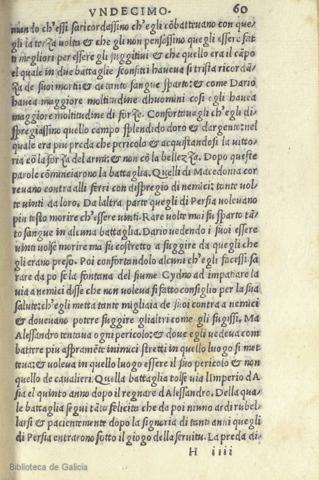 VNDECIMO. 60
mando ch'essi saricordassino ch'egli cōbattevano con que,
gli la terza volta & che egli non pensassino quegli essere fat
ti megliori per essere gli fuggitivi & che quello era il cãpo
el quale in due battaglie sconfitti haueua si trista ricordã,
za de suoi morti & de tanto sangue sparto: & come Dario
haueua maggiore moltitudine dhuomini cosi egli haueua
maggiore moltitudine di forze. Confortauagli ch'egli di,
spregiassino quello campo splendido doro & dargento: nel
quale era piu preda che pericolo & acquistandosi la vitto,
ria cō la forza del armi: & non cō la bellezza. Dopo queste
parole cōminciarono la battaglia. Quelli di Macedonia cor
reuano contra alli ferri con dispregio di nemici: tante vol,
te vinti da loro. Da laltra parte quegli di Persia voleuano
piu tosto morire ch'essere vinti. Rare volte mai fu sparto tã,
to sangue in alcuna battaglia. Dario vedendo i suoi essere
vinti volse morire ma fu costretto a fuggire da quegli che
gli erano preso. Poi confortandolo alcuni ch'egli facessi sa
rare da po se la fontana del fiume Cydno ad impatiare la
via a nemici disse che non voleua si fatto consiglio per la sua
salute: ch'egli metta tante migliaia de suoi contra a nemici
& doueuano potere fuggire gli altri come gli fuggissi. Ma
Alessandro tentaua ogni pericolo: & doue egli vedeua com
battere piu aspramēte inimici stretti in quello luogo si met
teua: & voleua in quello luogo essere il suo pericolo & non
quello de cavalieri. Quella battaglia tolse via limperio dA
sia el quinto anno dopo il regnare dAlessandro. Della qua,
le battaglia segui tãta felicita che da poi niuno ardi rubel,
larsi & pacientemente dopo la signoria di tanti anni quegli
di Persia entrarono sotto il giogo della seruitu. La preda di
H iiii
Biblioteca de Galicia